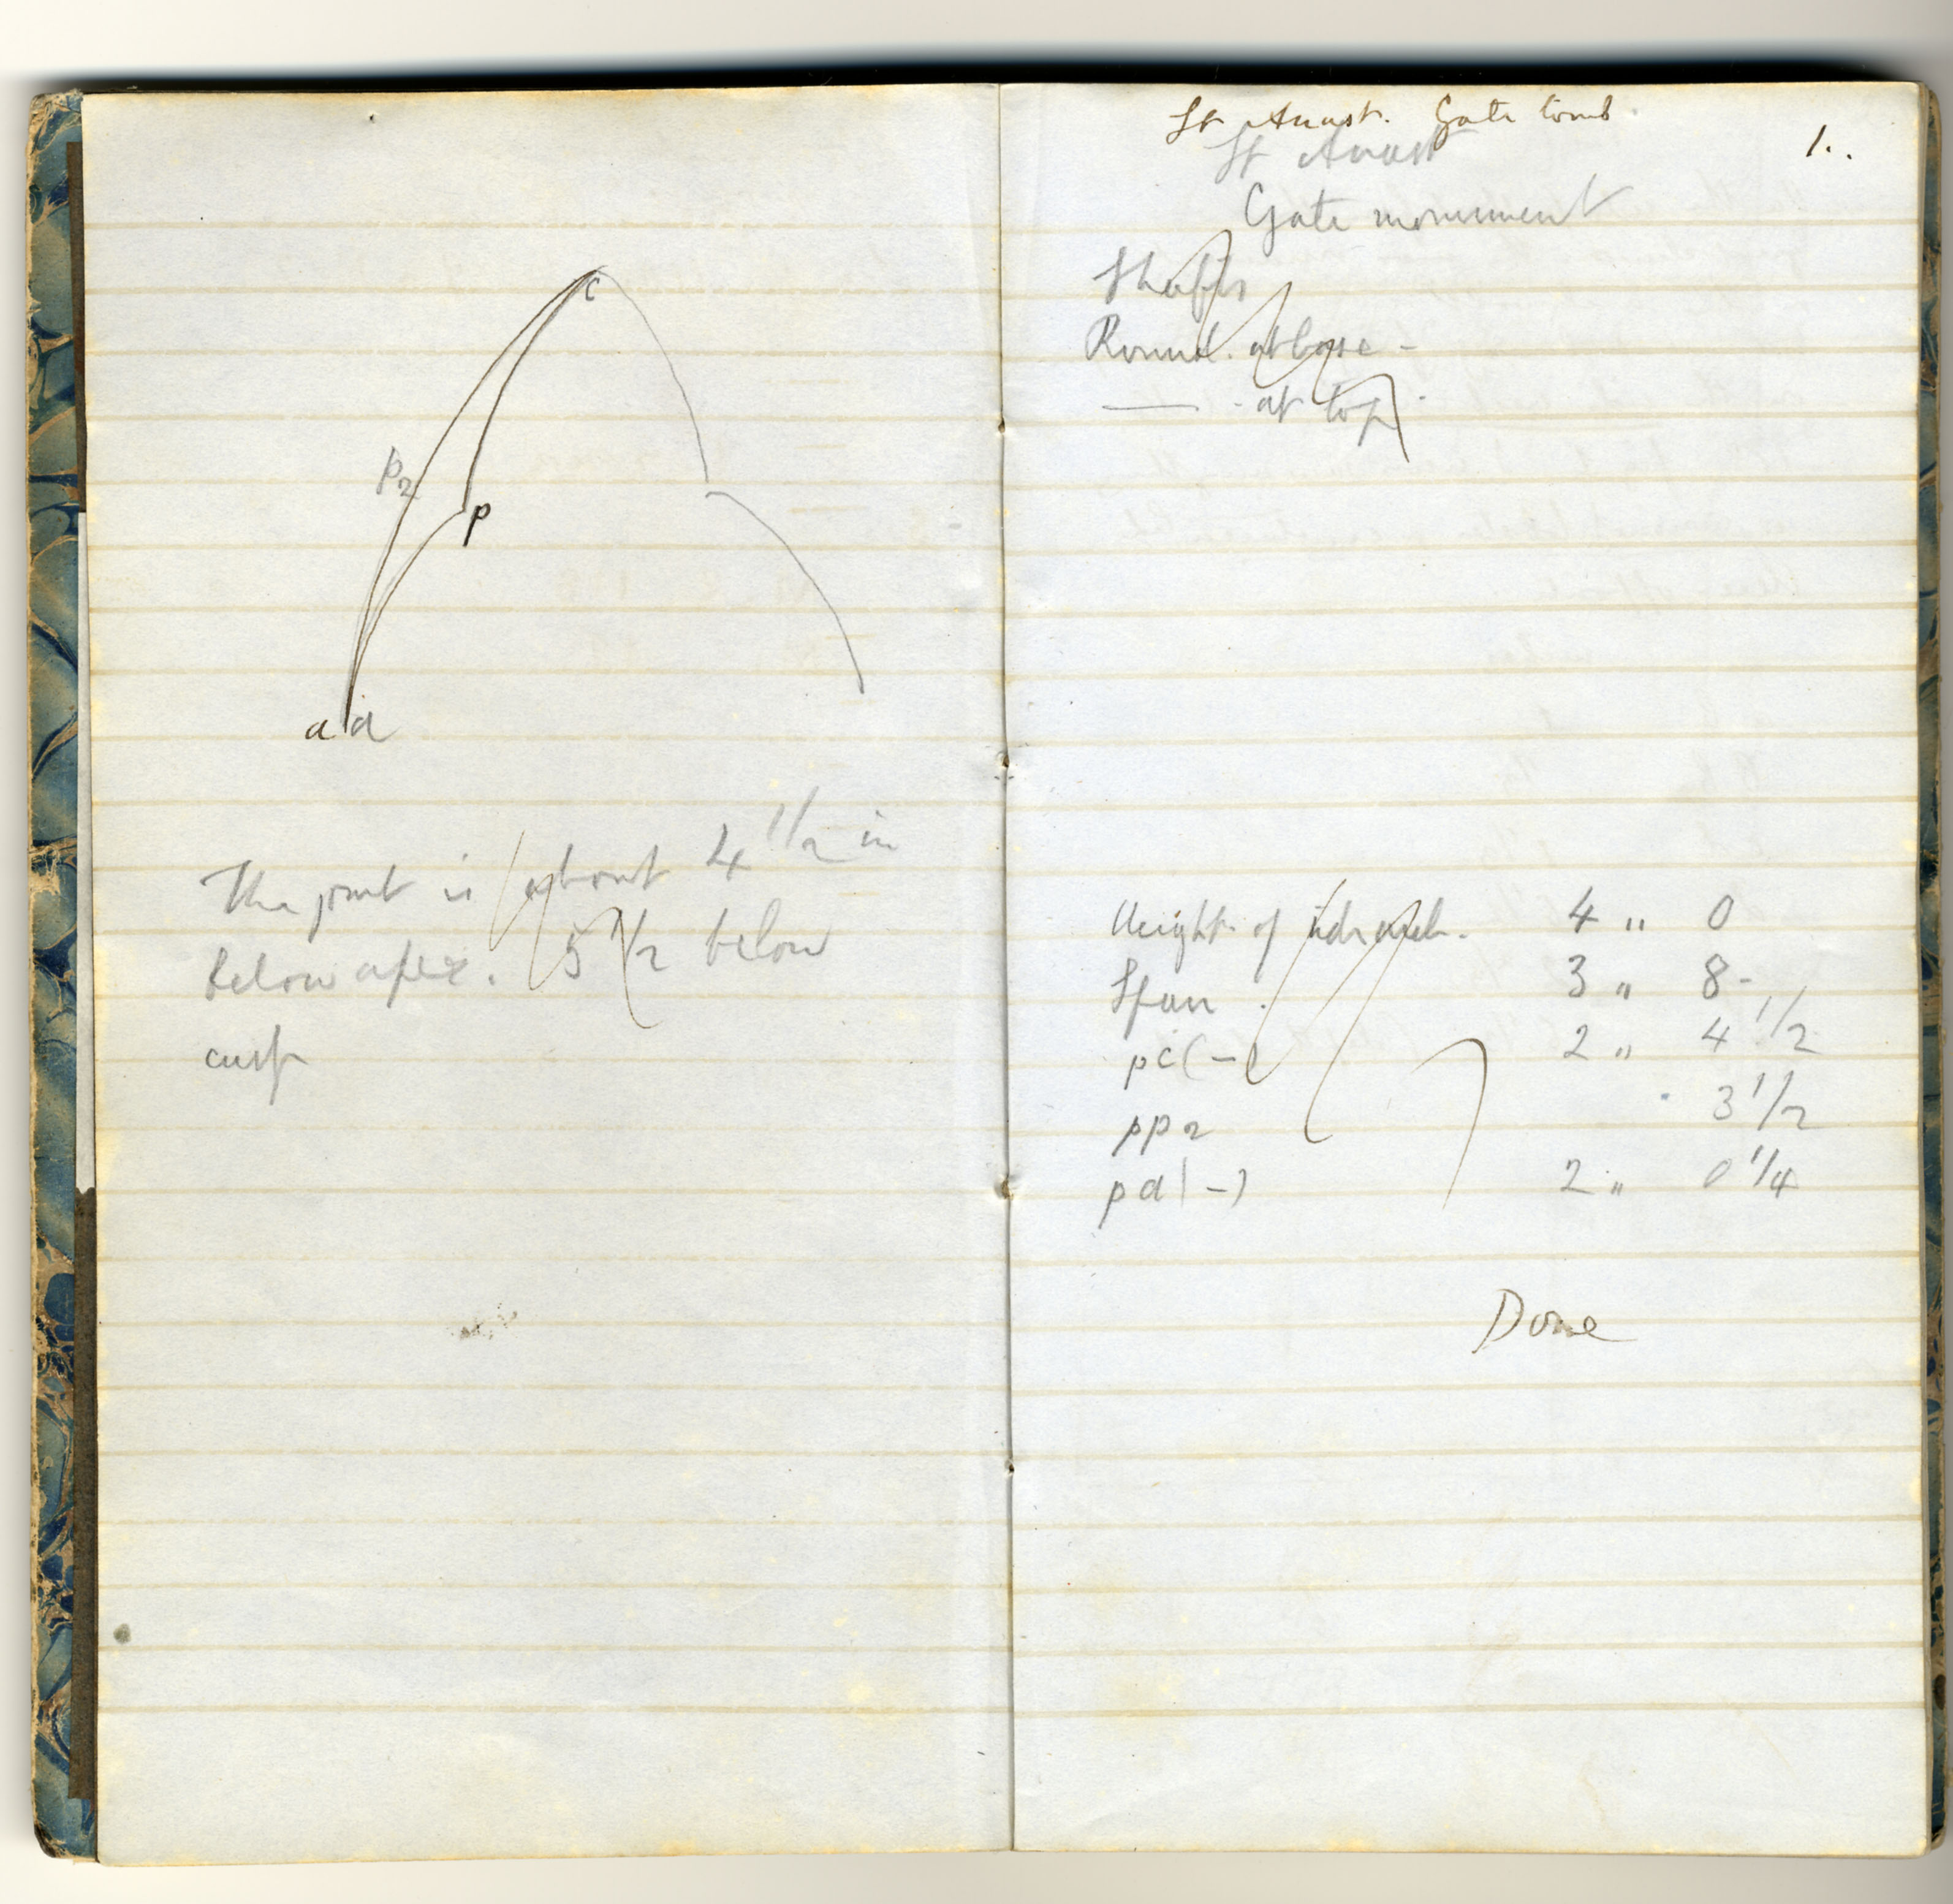 c
p2
p
a d
The joint is about 4 1/2 in
below apex. 5 1/2 below
cusp
St Anast. Gate tomb
1.
St Anast
Gate monument
Shafts
Round. at base -
—— - at top.
Height of arch. 4 " 0
Span . 3 " 8 -
pc (-) 2 " 4 1/2
pp2 3 1/2
pd (-) 2 " 0 1/4
Done